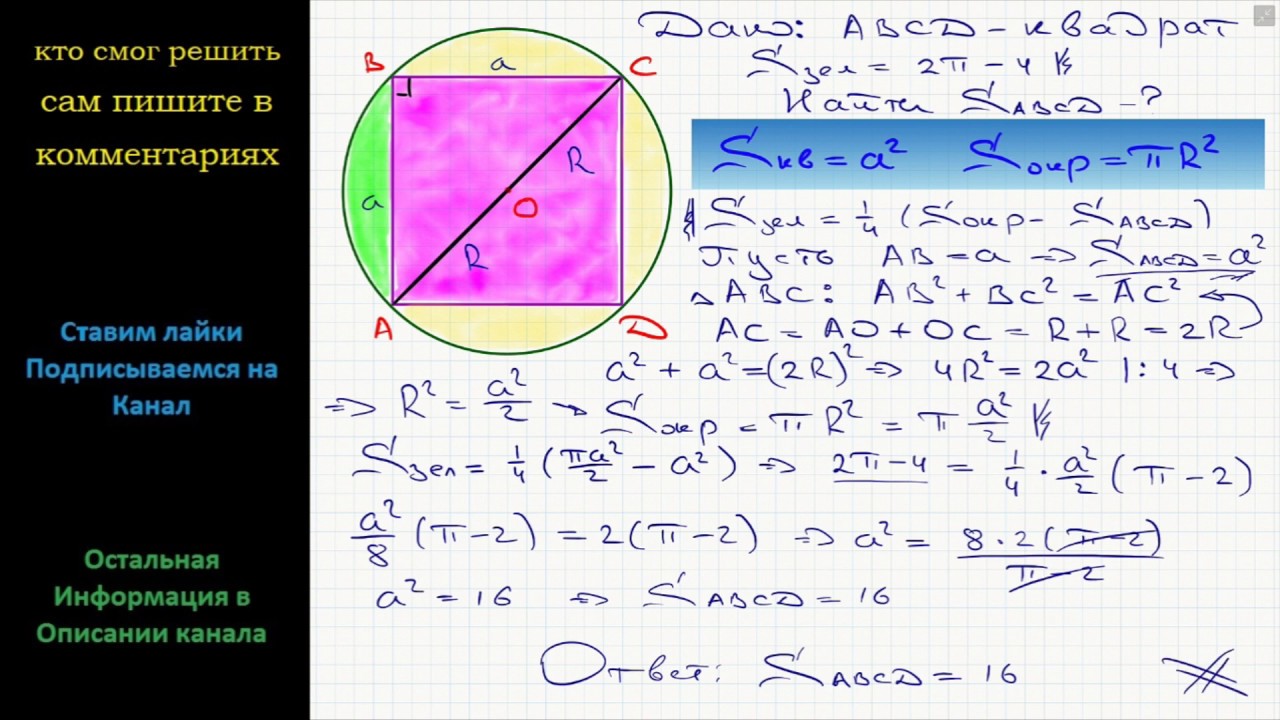 кто смог решить
сам пишите в
комментариях
Ставим лайки
Подписываемся на
Канал
Остальная
Информация в
Описании канала
B
a
C
a
R
O
R
A
D
Дано: ABCD - квадрат
Sзел = 2π - 4
Найти SABCD - ?
Sкв = a² Sокр = πR²
Sзел = 1/4 (Sокр - SABCD)
Пусть AB = a => SABCD = a²
△ABC: AB² + BC² = AC²
AC = AO + OC = R + R = 2R
a² + a² = (2R)² => 4R² = 2a² |: 4 =>
=> R² = a²/2 → Sокр = πR² = π a²/2
Sзел = 1/4 (πa²/2 - a²) => 2π - 4 = 1/4 · a²/2 (π - 2)
a²/8 (π - 2) = 2(π - 2) => a² = 8 · 2(π - 2)/π - 2
a² = 16 => SABCD = 16
Ответ: SABCD = 16